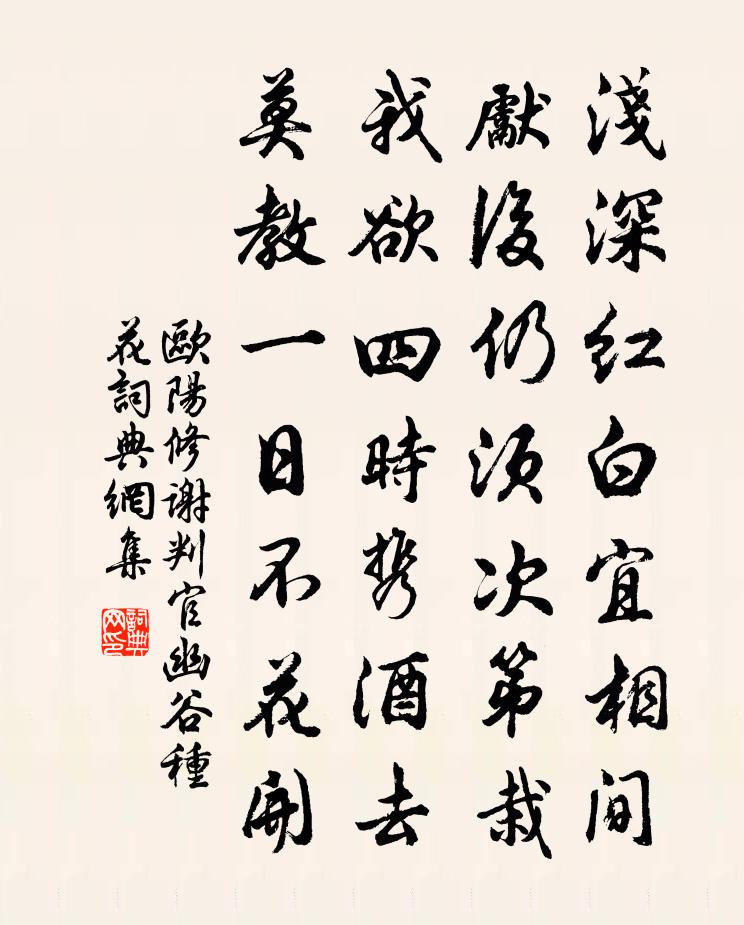 淺深紅白宜相間
獻後仍須次第栽
我欲四時携酒去
莫教一日不花開
歐陽修謝判官幽谷種
花詞典網集
詞典
网印